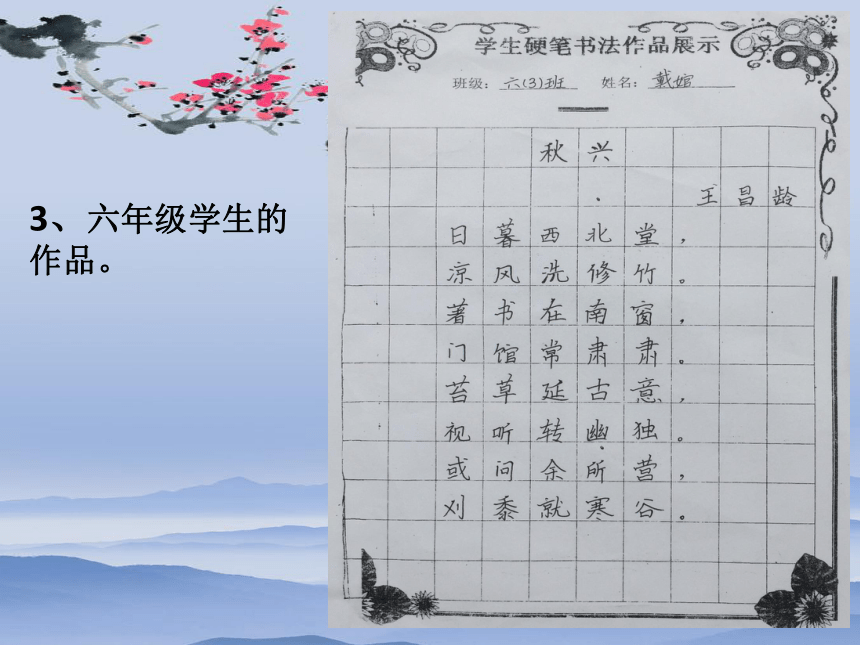 3、六年级学生的
作品。
学生硬笔书法作品展示
班级：六(3)班 姓名：戴婠
秋兴
王昌龄
日暮西北堂，
凉风洗修竹。
著书在南窗，
门馆常肃肃。
苔草延古意，
视听转幽独。
或问余所营，
刈黍就寒谷。